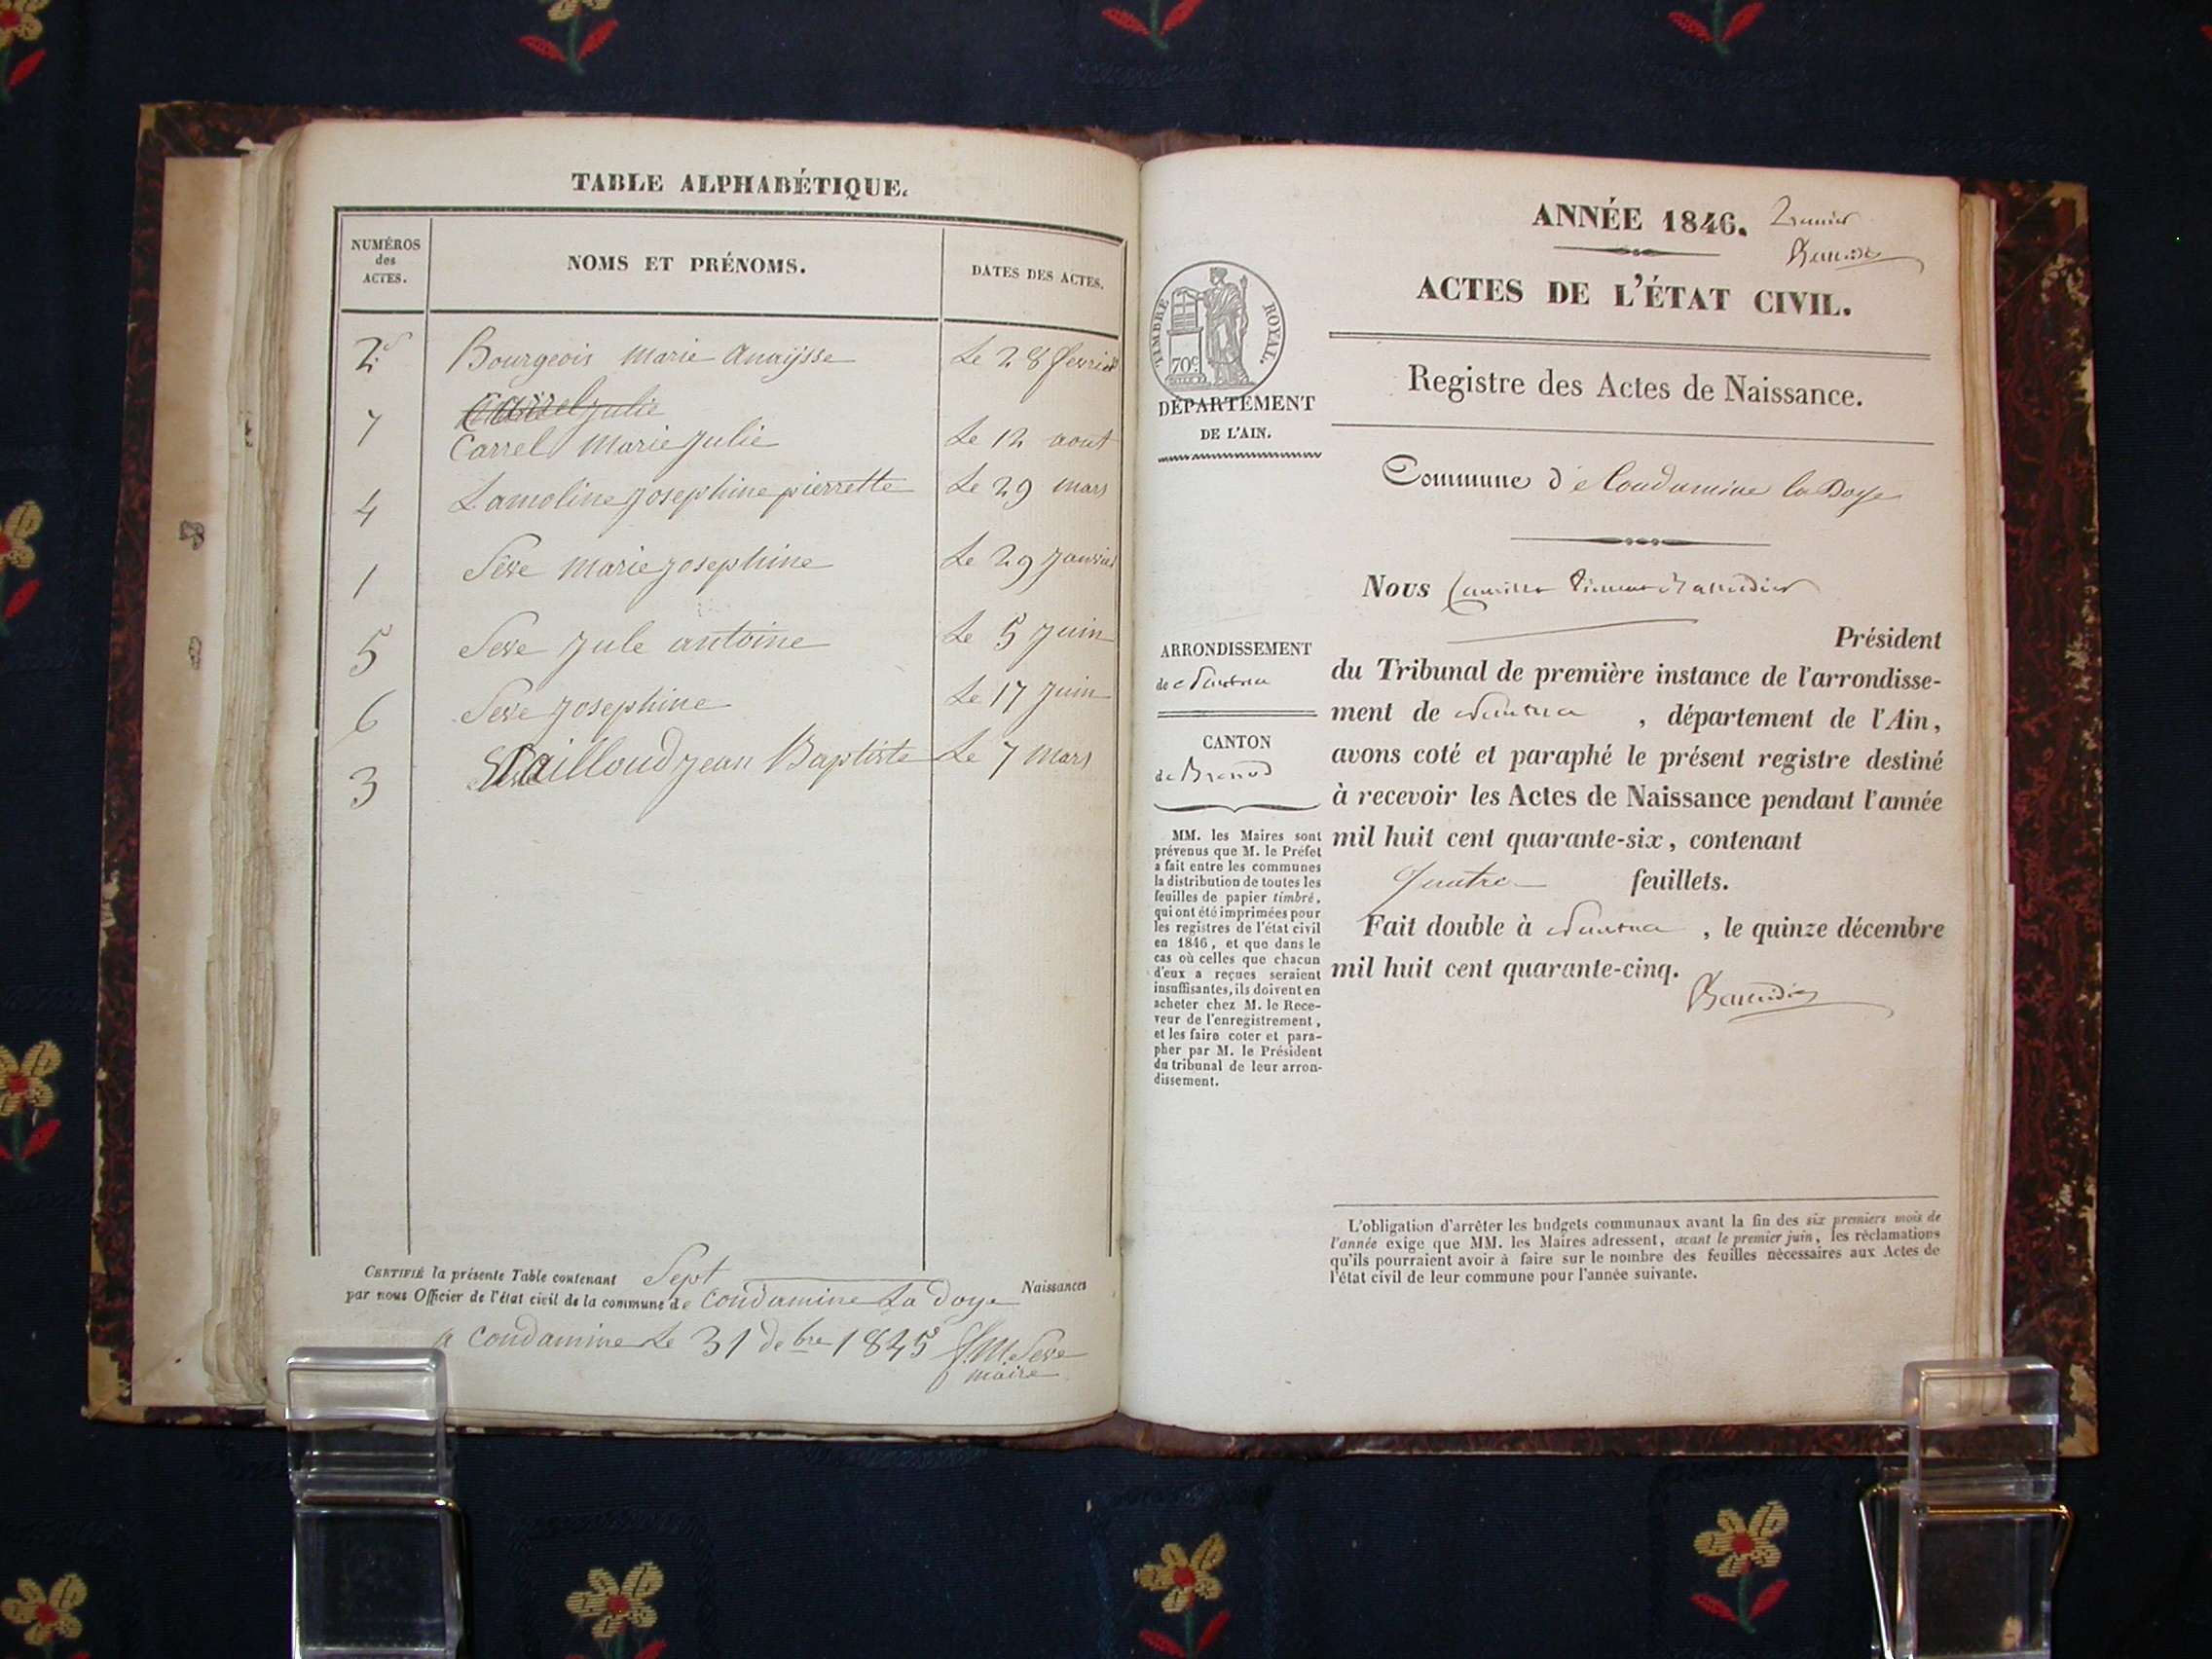 TABLE ALPHABÉTIQUE.
NUMÉROS
des
ACTES.
NOMS ET PRÉNOMS.
DATES DES ACTES.
2 Bourgeois Marie Anaÿsse Le 28 fevrier
Carrel Julie
7 Carrel Marie Julie Le 12 aout
4 Lamoline Josephine pierrette Le 29 mars
1 Seve Marie Josephine Le 29 Janvier
5 Seve Jule antoine Le 5 Juin
6 Seve Josephine Le 17 Juin
3 Tailloud Jean Baptiste Le 7 Mars
CERTIFIÉ la présente Table contenant Sept Naissances
par nous Officier de l'état civil de la commune de Condamine La Doye
a Condamine Le 31 debre 1845 Seve
maire
ANNÉE 1846.
ACTES DE L'ÉTAT CIVIL.
Registre des Actes de Naissance.
Commune d e Condamine la Doye
TIMBRE ROYAL.
70c
DÉPARTEMENT
DE L'AIN.
ARRONDISSEMENT
de Nantua
CANTON
de Brenod
MM. les Maires sont
prévenus que M. le Préfet
a fait entre les communes
la distribution de toutes les
feuilles de papier timbré,
qui ont été imprimées pour
les registres de l'état civil
en 1846, et que dans le
cas où celles que chacun
d'eux a reçues seraient
insuffisantes, ils doivent en
acheter chez M. le Rece-
veur de l'enregistrement,
et les faire coter et para-
pher par M. le Président
du tribunal de leur arron-
dissement.
Nous
Président
du Tribunal de première instance de l'arrondisse-
ment de Nantua , département de l'Ain,
avons coté et paraphé le présent registre destiné
à recevoir les Actes de Naissance pendant l'année
mil huit cent quarante-six, contenant
quatre feuillets.
Fait double à Nantua , le quinze décembre
mil huit cent quarante-cinq.
L'obligation d'arrêter les budgets communaux avant la fin des six premiers mois de
l'année exige que MM. les Maires adressent, avant le premier juin, les réclamations
qu'ils pourraient avoir à faire sur le nombre des feuilles nécessaires aux Actes de
l'état civil de leur commune pour l'année suivante.